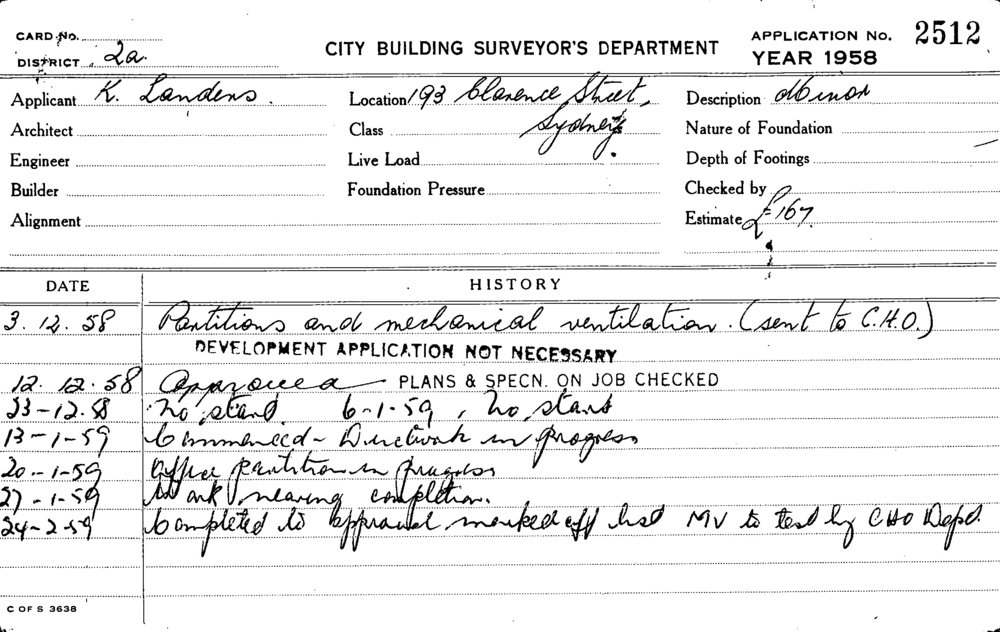 CARD No.
DISTRICT 2a.
CITY BUILDING SURVEYOR'S DEPARTMENT
APPLICATION No. 2512
YEAR 1958
Applicant K. Landens.
Location 193 Clarence Street,
Sydney.
Description Minor
Architect
Class
Nature of Foundation
Engineer
Live Load
Depth of Footings
Builder
Foundation Pressure
Checked by
Alignment
Estimate £167.
DATE HISTORY
3.12.58 Partitions and mechanical ventilation. (sent to C.H.O.)
DEVELOPMENT APPLICATION NOT NECESSARY
12.12.58 Approved PLANS & SPECN. ON JOB CHECKED
23-12-58 No start 6-1-59, No start
13-1-59 Commenced - Ductwork in progress
20-1-59 Office partition in progress
27-1-59 Work nearing completion.
24-2-59 Completed to approval marked off list MV to test by CHO Dept.
C OF S 3638